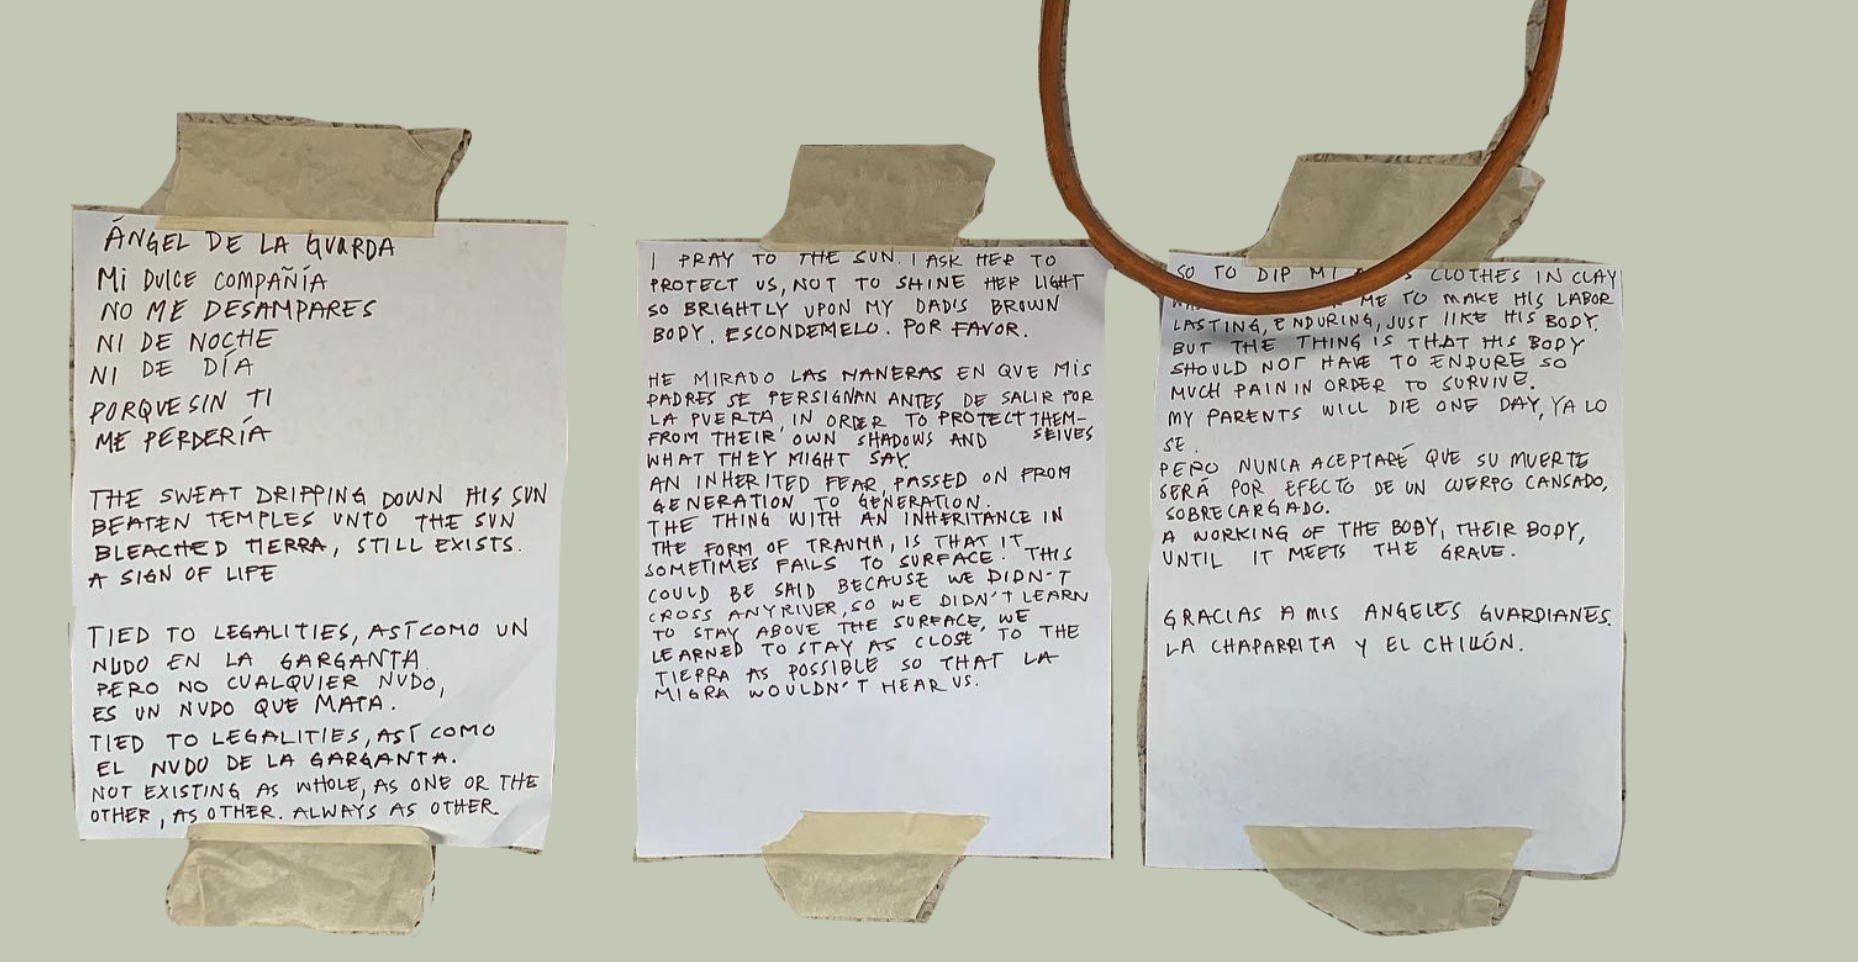 ÁNGEL DE LA GUARDA
MI DULCE COMPAÑÍA
NO ME DESAMPARES
NI DE NOCHE
NI DE DÍA
PORQUE SIN TI
ME PERDERÍA
THE SWEAT DRIPPING DOWN HIS SUN
BEATEN TEMPLES UNTO THE SUN
BLEACHED TIERRA, STILL EXISTS.
A SIGN OF LIFE
TIED TO LEGALITIES, ASÍ COMO UN
NUDO EN LA GARGANTA.
PERO NO CUALQUIER NUDO,
ES UN NUDO QUE MATA.
TIED TO LEGALITIES, ASÍ COMO
EL NUDO DE LA GARGANTA.
NOT EXISTING AS WHOLE, AS ONE OR THE
OTHER, AS OTHER. ALWAYS AS OTHER.
I PRAY TO THE SUN. I ASK HER TO
PROTECT US, NOT TO SHINE HER LIGHT
SO BRIGHTLY UPON MY DAD'S BROWN
BODY. ESCONDEMELO. POR FAVOR.
HE MIRADO LAS MANERAS EN QUE MIS
PADRES SE PERSIGNAN ANTES DE SALIR POR
LA PUERTA, IN ORDER TO PROTECT THEM-
FROM THEIR OWN SHADOWS AND SELVES
WHAT THEY MIGHT SAY.
AN INHERITED FEAR, PASSED ON FROM
GENERATION TO GENERATION.
THE THING WITH AN INHERITANCE IN
THE FORM OF TRAUMA, IS THAT IT
SOMETIMES FAILS TO SURFACE. THIS
COULD BE SAID BECAUSE WE DIDN'T
CROSS ANY RIVER, SO WE DIDN'T LEARN
TO STAY ABOVE THE SURFACE, WE
LEARNED TO STAY AS CLOSE TO THE
TIERRA AS POSSIBLE SO THAT LA
MIGRA WOULDN'T HEAR US.
SO TO DIP MI CLOTHES IN CLAY
ME TO MAKE HIS LABOR
LASTING, ENDURING, JUST LIKE HIS BODY.
BUT THE THING IS THAT HIS BODY
SHOULD NOT HAVE TO ENDURE SO
MUCH PAIN IN ORDER TO SURVIVE.
MY PARENTS WILL DIE ONE DAY, YA LO
SE.
PERO NUNCA ACEPTARÉ QUE SU MUERTE
SERÁ POR EFECTO DE UN CUERPO CANSADO,
SOBRECARGADO.
A WORKING OF THE BODY, THEIR BODY,
UNTIL IT MEETS THE GRAVE.
GRACIAS A MIS ANGELES GUARDIANES.
LA CHAPARRITA Y EL CHILLÓN.